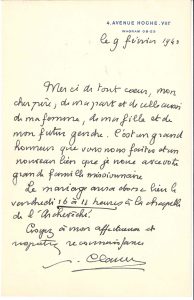 4, AVENUE HOCHE, VIIIᵉ
WAGRAM
le 9 février 194
Merci de tout coeur, mon
cher père, de ma part et de celle aussi
de ma femme, de ma fille et de
mon futur gendre. C'est un grand
honneur que vous nous faites et un
nouveau lien que je noue avec votre
grande famille missionnaire
Le mariage aura donc lieu le
vendredi 16 à 11 heures à la chapelle
de l'Archevêché.
Croyez à mon affectueuse et
respectueuse reconnaissance